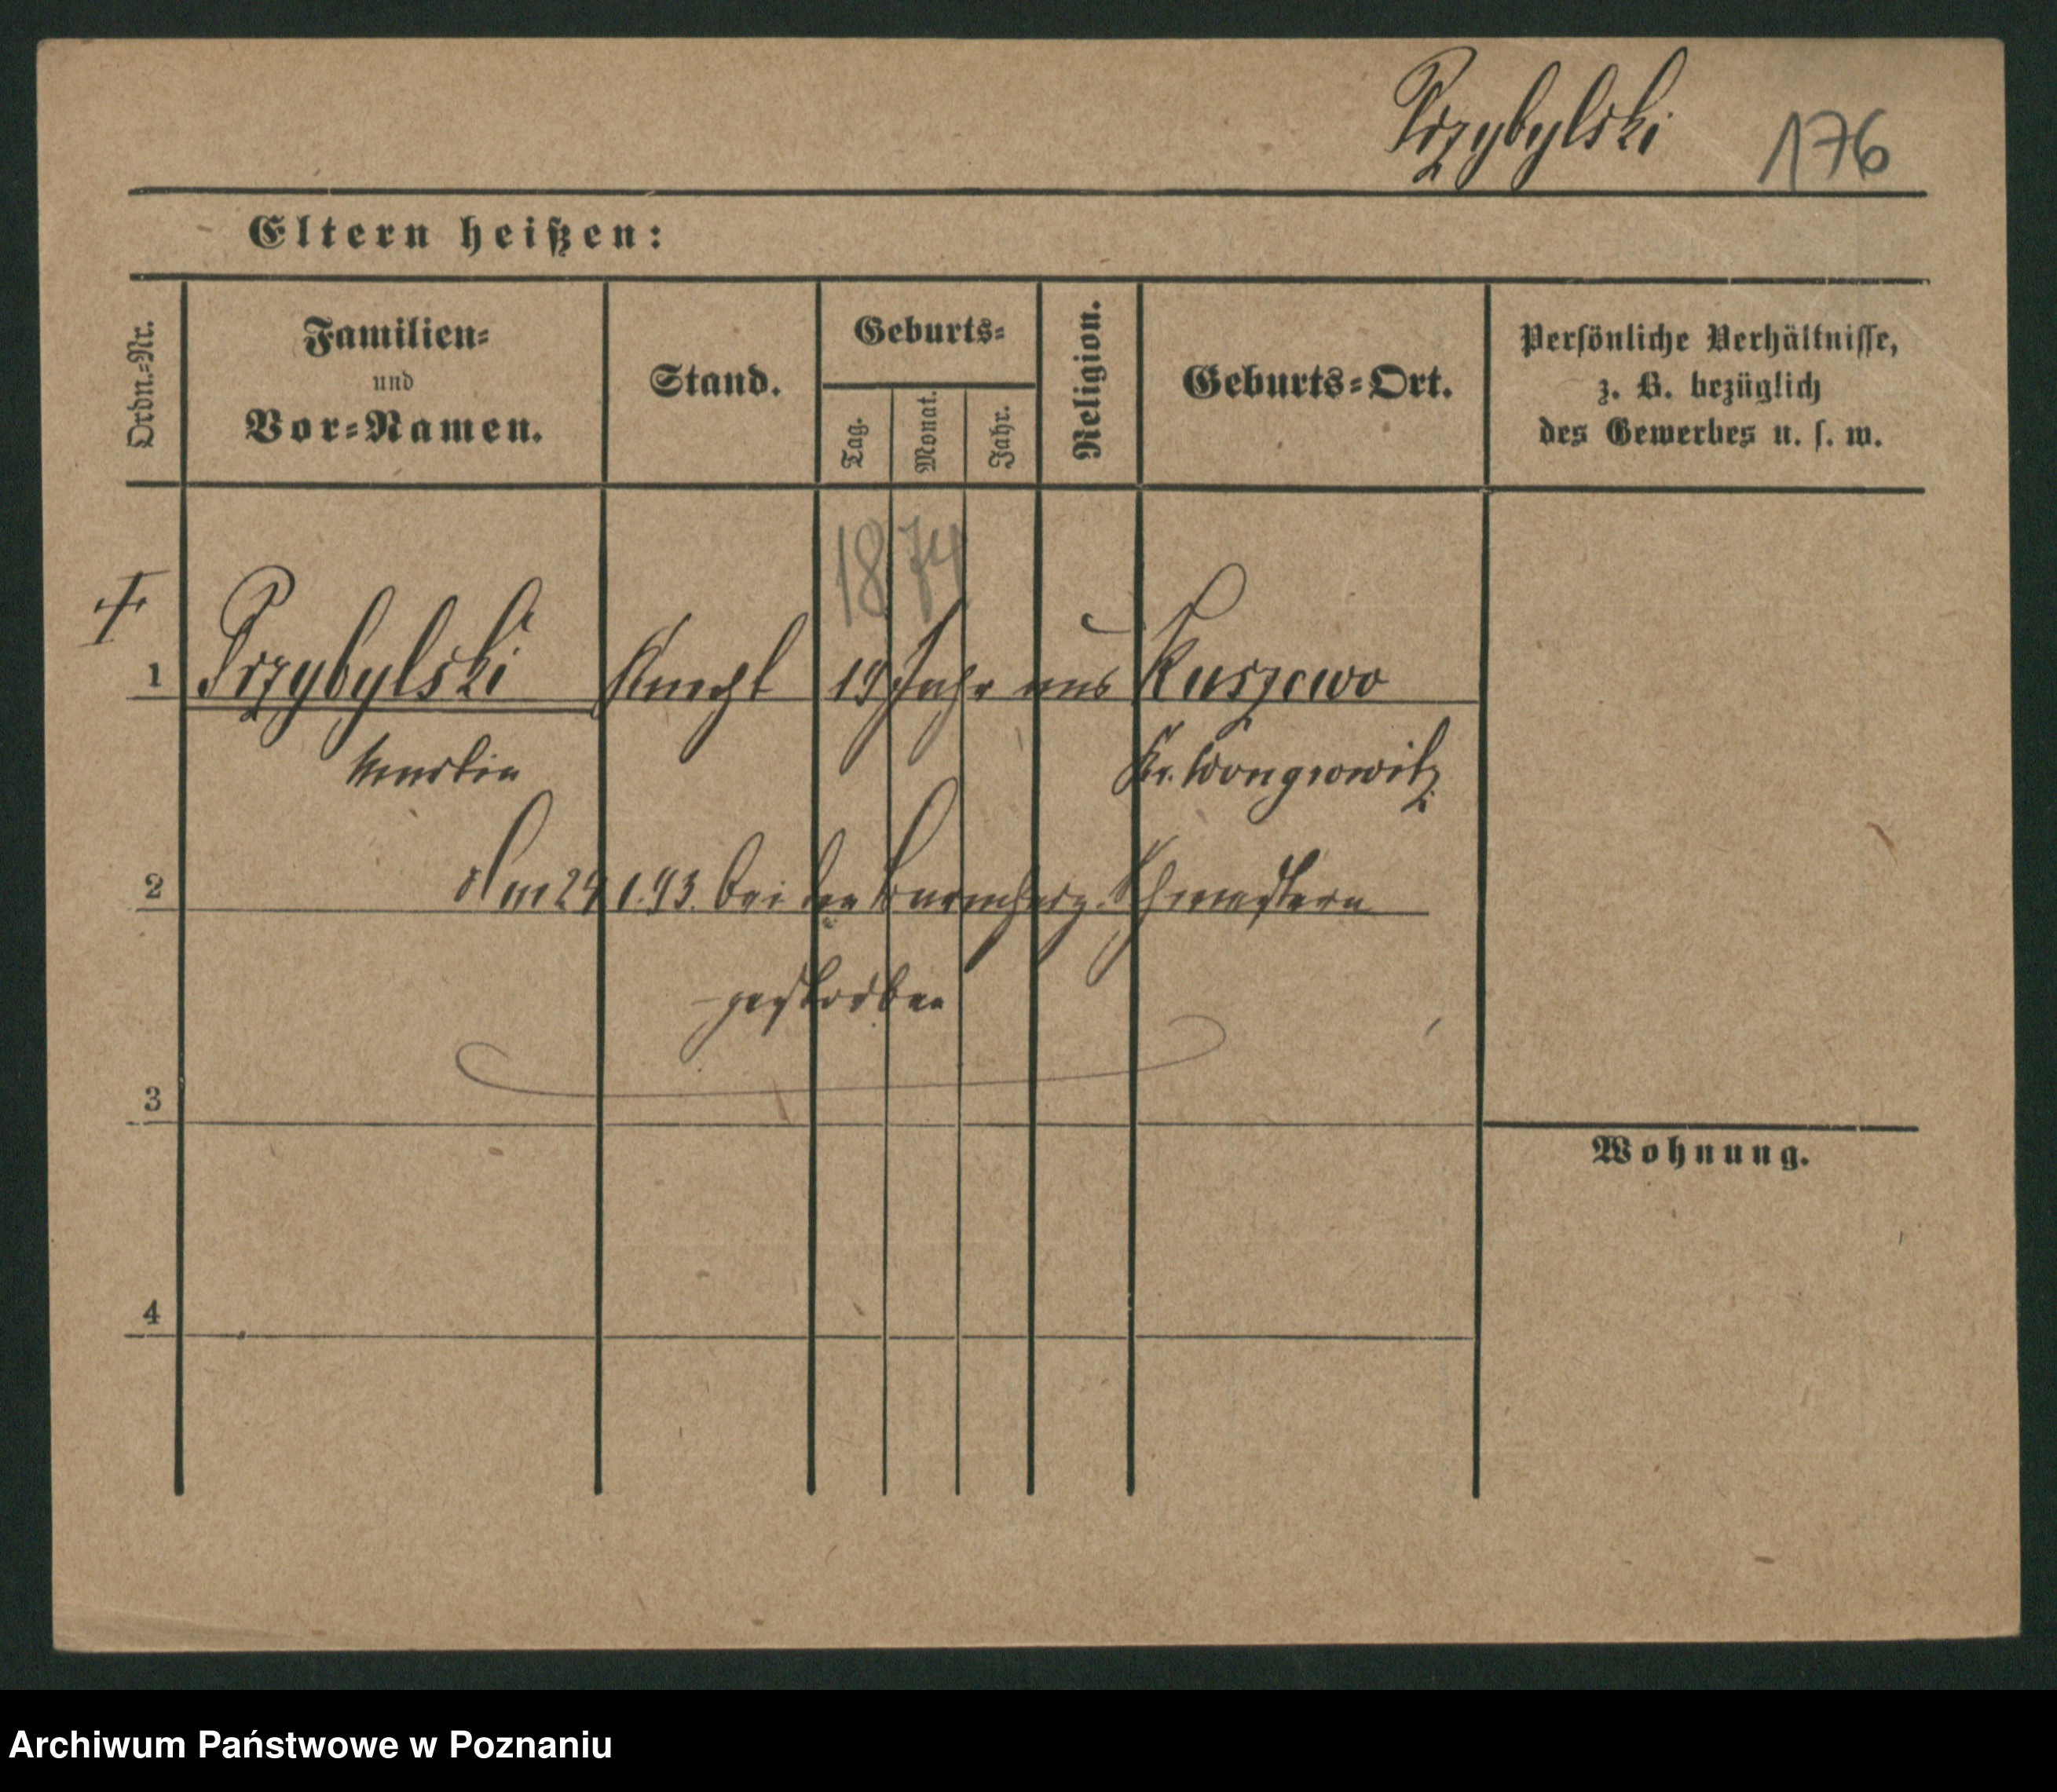 Przybylski 176
Eltern heißen:
Ordn.-Nr.
Familien-
und
Vor-Namen.
Stand.
Geburts-
Tag.
Monat.
Jahr.
Religion.
Geburts-Ort.
Persönliche Verhältnisse,
z. B. bezüglich
des Gewerbes u. s. w.
1874
1 Przybylski Knecht 19 Jahr aus Kuszewo
Kr. Wongrowitz
2 Am 24 1.93. bei den Barmherz. Schwestern
gestorben
3
Wohnung.
4
Archiwum Państwowe w Poznaniu